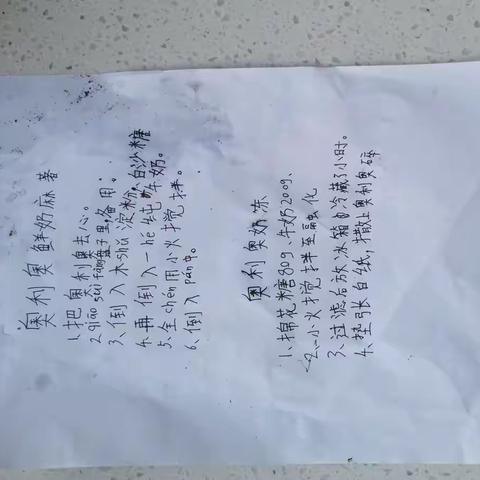 奥利奥鲜奶麻薯
1、把奥利奥去心。
2、qiāo suì fàng盘子里备用。
3、倒入木shǔ淀粉,白沙糖
4、再倒入一hé纯牛奶。
5、全chén用小火搅拌。
6、倒入pán中。
奥利奥奶冻
1、棉花糖80g、牛奶200g、
2、小火搅拌至融化
3、过滤后放冰箱冷藏3小时。
4、垫张白纸,撒上奥利奥碎